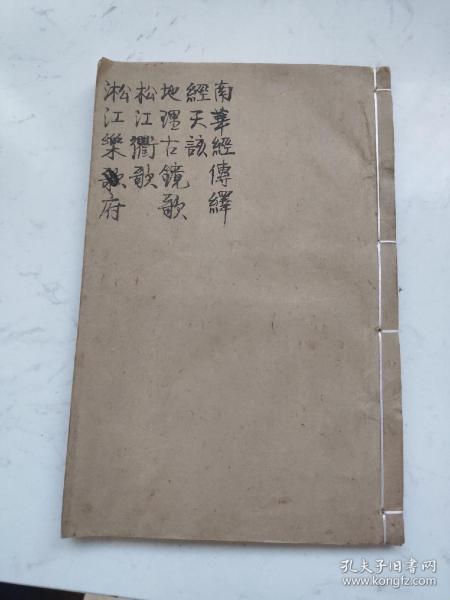 南華經傳繹
經天該
地理古鏡歌
松江衢歌
淞江樂府
孔夫子旧书网
www.kongfz.com